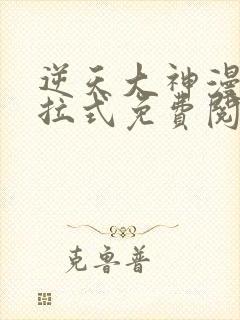 逆天大神漫
拉式免費閱
克魯普